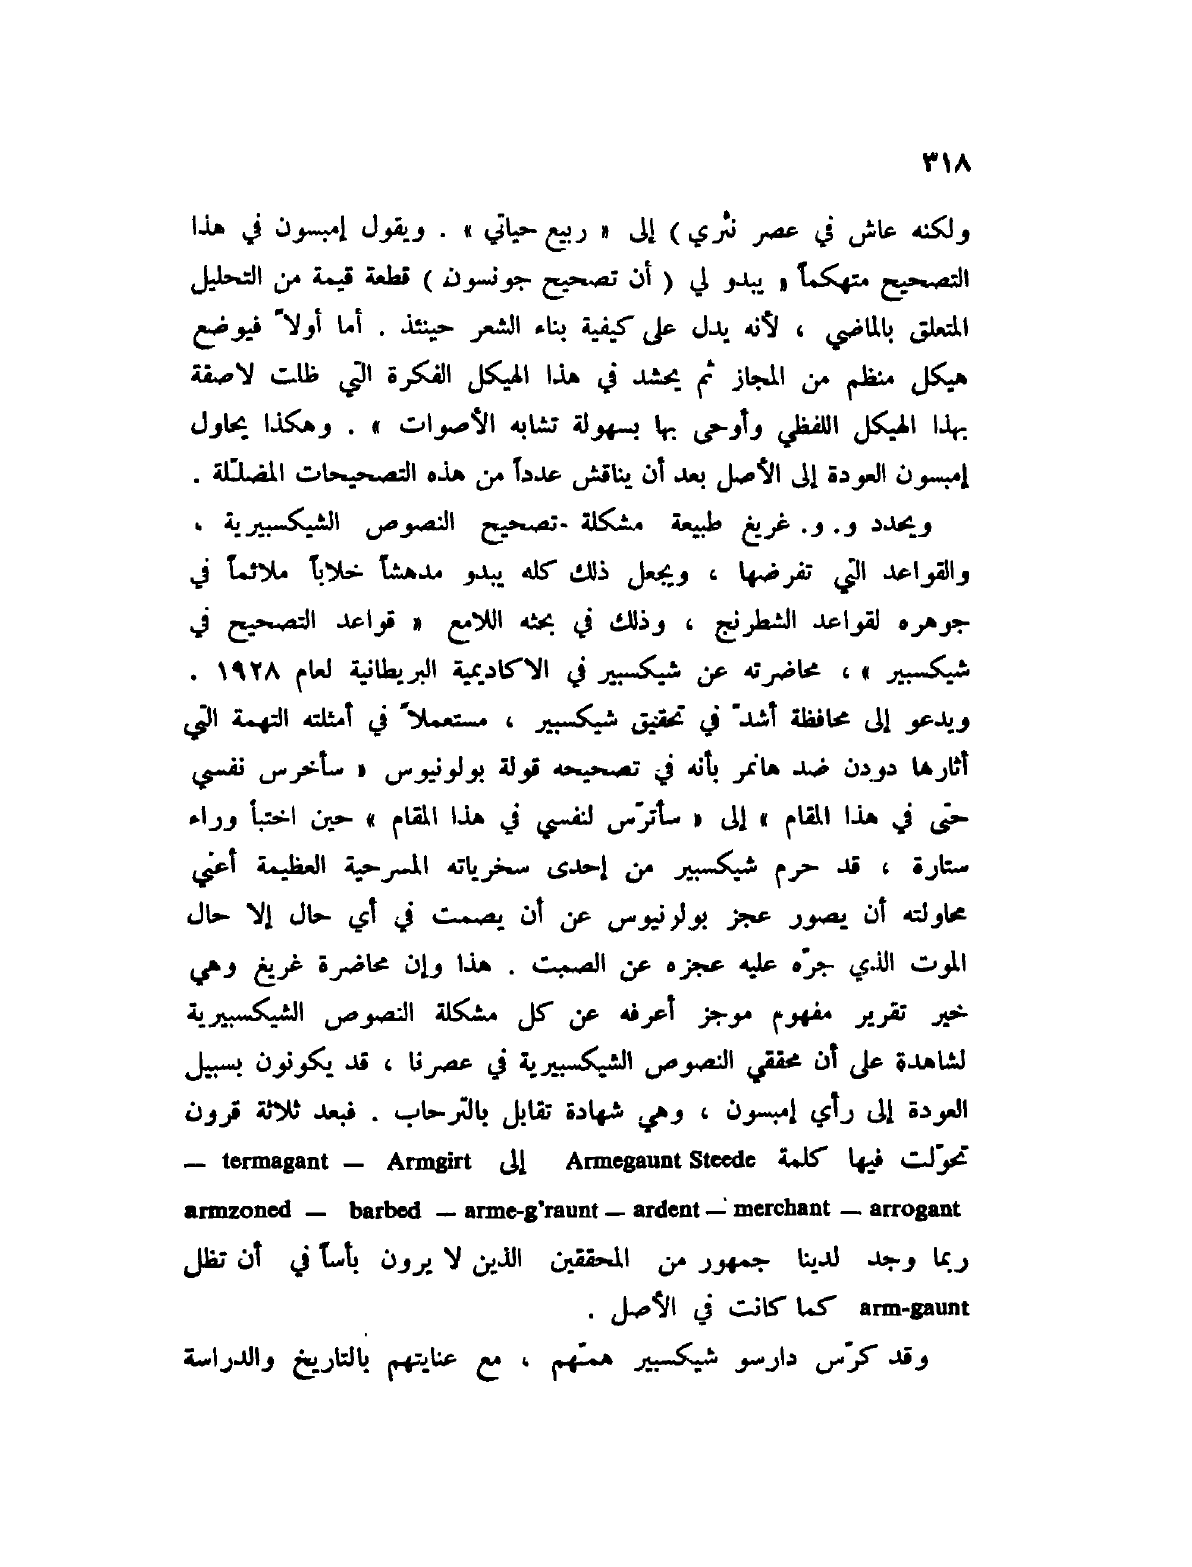 ٣١٨
ولكنه عاش في عصر نثري ) إلى « ربيع حياتي » . ويقول إمبسون في هذا
التصحيح متهكماً « يبدو لي ( أن تصحيح جونسون ) قطعة قيمة من التحليل
المتعلق بالماضي ، لأنه يدل على كيفية بناء الشعر حينئذ . أما أولاً فيوضع
هيكل منظم من المجاز ثم يحشد في هذا الهيكل الفكرة التي ظلت لاصقة
بهذا الهيكل اللفظي وأوحى بها بسهولة تشابه الأصوات » . وهكذا يحاول
إمبسون العودة إلى الأصل بعد أن يناقش عدداً من هذه التصحيحات المضلّلة .
ويحدد و. و. غريغ طبيعة مشكلة تصحيح النصوص الشيكسبيرية ،
والقواعد التي تفرضها ، ويجعل ذلك كله يبدو مدهشاً خلاباً ملائماً في
جوهره لقواعد الشطرنج ، وذلك في بحثه اللامع « قواعد التصحيح في
شيكسبير » ، محاضرته عن شيكسبير في الاكاديمية البريطانية لعام ١٩٢٨ .
ويدعو إلى محافظة أشدّ في تحقيق شيكسبير ، مستعملاً في أمثلته التهمة التي
أثارها دودن ضد هانمر بأنه في تصحيحه قولة بولونيوس « سأخرس نفسي
حتى في هذا المقام » إلى « سأترّس لنفسي في هذا المقام » حين اختبأ وراء
ستارة ، قد حرم شيكسبير من إحدى سخرياته المسرحية العظيمة أعني
محاولته أن يصور عجز بولونيوس عن أن يصمت في أي حال إلا حال
الموت الذي جرّه عليه عجزه عن الصمت . هذا وإن محاضرة غريغ وهي
خير تقرير مفهوم موجز أعرفه عن كل مشكلة النصوص الشيكسبيرية
لشاهدة على أن محققي النصوص الشيكسبيرية في عصرنا ، قد يكونون بسبيل
العودة إلى رأي إمبسون ، وهي شهادة تقابل بالترحاب . فبعد ثلاثة قرون
تحوّلت فيها كلمة Armegaunt Steede إلى Armgirt — termagant —
armzoned — barbed — arme-g'raunt — ardent — merchant — arrogant
ربما وجد لدينا جمهور من المحققين الذين لا يرون بأساً في أن تظل
arm-gaunt كما كانت في الأصل .
وقد كرّس دارسو شيكسبير همّهم ، مع عنايتهم بالتاريخ والدراسة